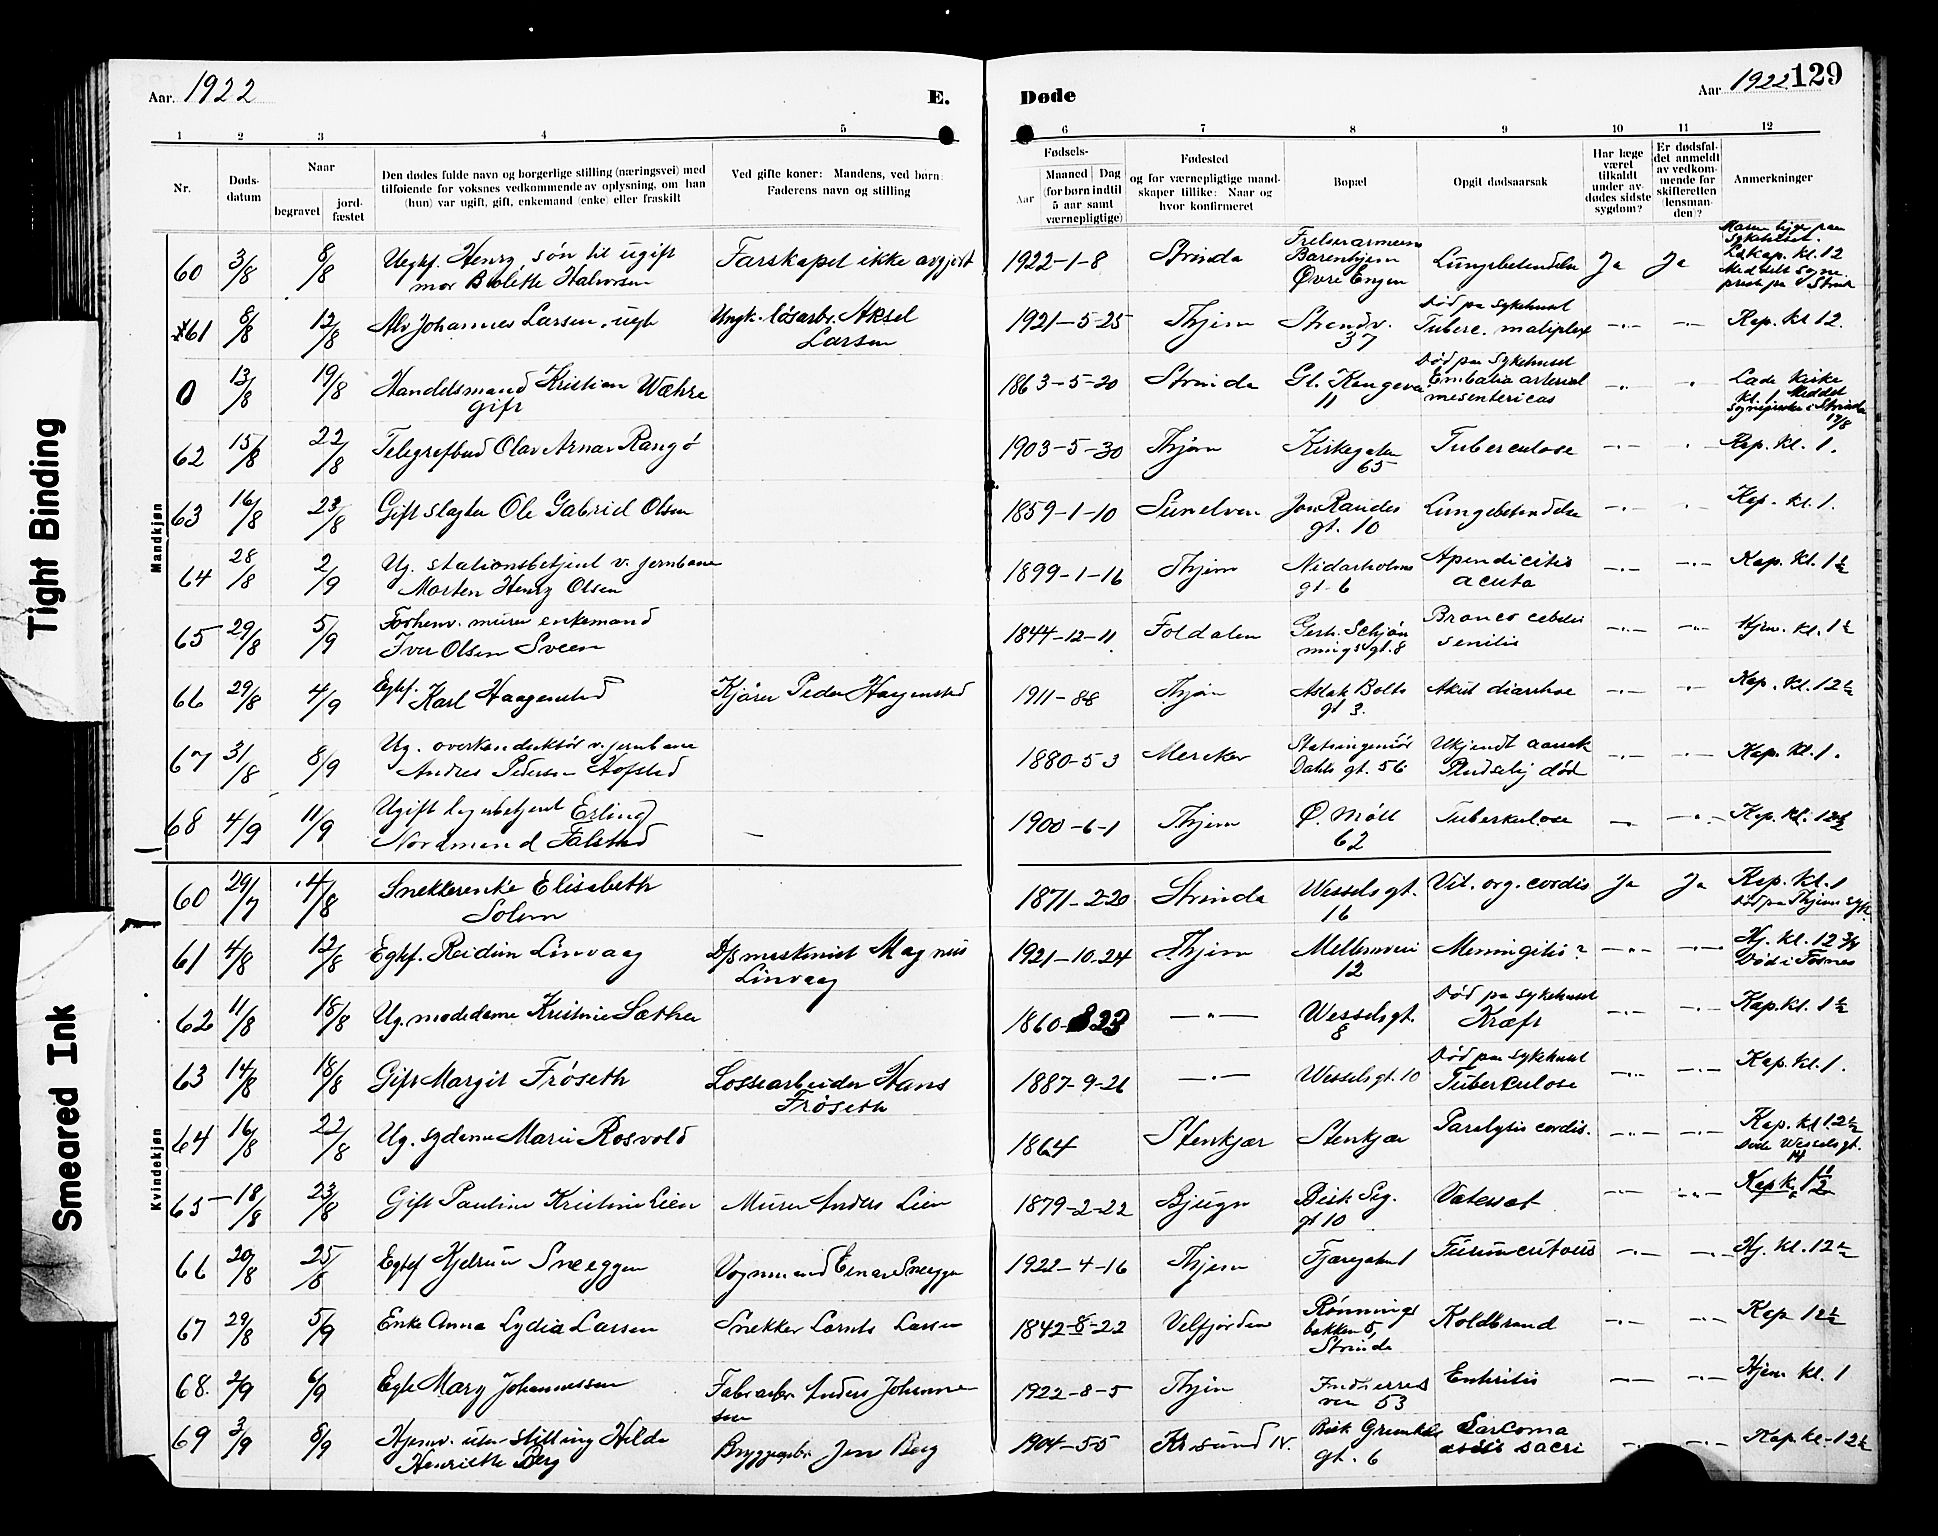 Tight Binding
Smeared Ink
Aar. 1922
E.
Døde
Aar 1922
129
1 2 3 4 5 6 7 8 9 10 11 12
Nr.
Døds-
datum
Naar
begravet
jord-
fæstet
Den dødes fulde navn og borgerlige stilling (næringsvei) med
tilføiende for voksnes vedkommende av oplysning, om han
(hun) var ugift, gift, enkemand (enke) eller fraskilt
Ved gifte koner: Mandens, ved børn:
Faderens navn og stilling
Fødsels-
Aar
Maaned Dag
(for børn indtil
5 aar samt
værnepligtige)
Fødested
og for værnepligtige mand-
skaper tillike: Naar og
hvor konfirmeret
Bopæl
Opgit dødsaarsak
Har læge
været
tilkaldt
under av-
dødes sidste
sygdom?
Er dødsfal-
det anmeldt
av vedkom-
mende for
skifteretten
(lensman-
den)?
Anmerkninger
Mandkjøn
60 3/8 8/8 Uegtef. Henry, søn til ugift
mor Bolette Halvorsen
Farskapet ikke avgjort 1922-1-8 Strinda
Frelsesarmeens
Barnehjem
Øvre Engen
Lungebetændelse Ja Ja
Kap. kl. 12
61 8/8 12/8 Alv Johannes Larsen, ugt
Ungk. løsarb. Aksel
Larsen
1921-5-25 Thjem Strandv.
37
Død paa sykehuset
Tuberc. multiplex -"- -"- Kap. kl 12.
0 13/8 19/8 Handelsmand Kristian Wæhre
gift
1863-5-20 Strinda Gl. Kongevei
11
Død paa sykehuset
Embolia arteriae
mesentericas -"- "
Lade kirke
kl. 1. Meddelt
sogneprest i Strinda
17/8
62 15/8 22/8 Telegrafbud Olav Arnar Rangø
1903-5-30 Thjem Kirkegaten
65
Tuberculose -"- " Kap. kl. 1.
63 16/8 23/8 Gift slagter Ole Gabriel Olsen
1859-1-10 Sunelven Jon Raudes
gt. 10
Lungebetændelse -"- " Kap. kl. 1.
64 28/8 2/9 Ug. stationsbetjent v. jernbane
Morten Henry Olsen
1899-1-16 Thjem Nidarholms
gt. 6
Apendicitis
acuta -"- -"- Kap. kl. 1½
65 29/8 5/9 Forhenv. murer enkemand
Iver Olsen Sveen
1844-12-11 Foldalen Gerh. Schjøn
nings gt. 8
senilis -"- -"- Hjem. kl. 1½
66 29/8 4/9 Egtef. Karl Haagenstad
Kjører Peder Haagenstad
1911-8-8 Thjem Aslak Bolts
gt 3.
Akut diarrhoe -"- -"- Kap. kl. 12½
67 31/8 8/9 Ug. overkonduktør v. jernbane
Andres Pedersen Hofstad
1880-5-3 Meraker Statsingeniør
Dahls gt. 56
Ukjendt aarsak
Pludselig død -"- -"- Kap. kl. 1.
68 4/9 11/9 Ugift lagerbetjent Erling
Nordmand Falstad
1900-6-1 Thjem Ø. Møll
62
Tuberkulose - -"- Kap. kl. 12½
Kvindekjøn
60 29/7 4/8 Snekkerenke Elisabeth
Solem
1871-2-20 Strinda Wessels gt.
16
Vit. org. cordis Ja Ja Kap. kl. 1
Død paa Thjems syk.
61 4/8 12/8 Egtef. Reidun Linvaag
D/S maskinist Magnus
Linvaag
1921-10-24 Thjem Mellemveien
12
Meningitis? -"- -"- Hj. kl. 12¾
Død i Fosnes
62 11/8 18/8 Ug. modedame Kristine Sæther
1860-8-23 -"- Wessels gt.
8
Død paa sykehuset
Kræft -"- -"- Kap. kl. 1½
63 14/8 18/8 Gift Margit Frøseth
Lossearbeider Hans
Frøseth
1887-9-21 -"- Wessels gt. 10
Død paa sykehuset
Tuberkulose -"- -"- Kap. kl. 1.
64 16/8 22/8 Ug. sydame Marie Rosvold
1864 Stenkjær Stenkjær Paralysis cordis. -"- -"- Kap. kl 12½
Døde Wessels gt.
14
65 18/8 23/8 Gift Pauline Kristine Lien
Murer Anders Lien
1879-2-22 Bjugn Bisk. Sig.
gt 10
Vatersot -"- -"- Kap kl. 1½
66 20/8 25/8 Egtef Kjelrun Sneeggen
Vognmand Einar Sneeggen
1922-4-16 Thjem Fjæregaten 1
-"- -"- Hj. kl. 12½
67 29/8 5/9 Enke Anna Lydia Larsen
Snekker Lornts Larsen
1842-8-22 Velfjorden Rønnings
bakken 5,
Strinda
Koldbrand -"- -"- Kap 12½
68. 2/9 6/9 Egte Mary Johannessen
Fabr.arb. Anders Johannes
sen
1922-8-5 Thjem Innherreds
veien 53
Enteritis -"- -"- Hjem kl. 1
69 3/9 8/9 Hjemv. uten stilling Hilda
Henriette Berg
Bryggearb. Jon Berg
1904-5-5 Kr.sund N. Bisk Grimkels
gt. 6
Sarcoma
ossis sacri -"- -"- Kap kl. 12½